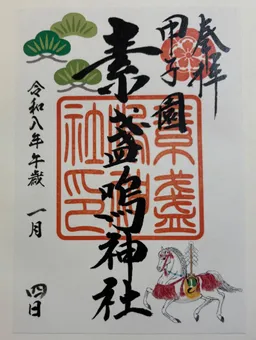 奉拝
甲子園
素盞嗚神社
素盞嗚神社印
令和八年午歳 一月 四日